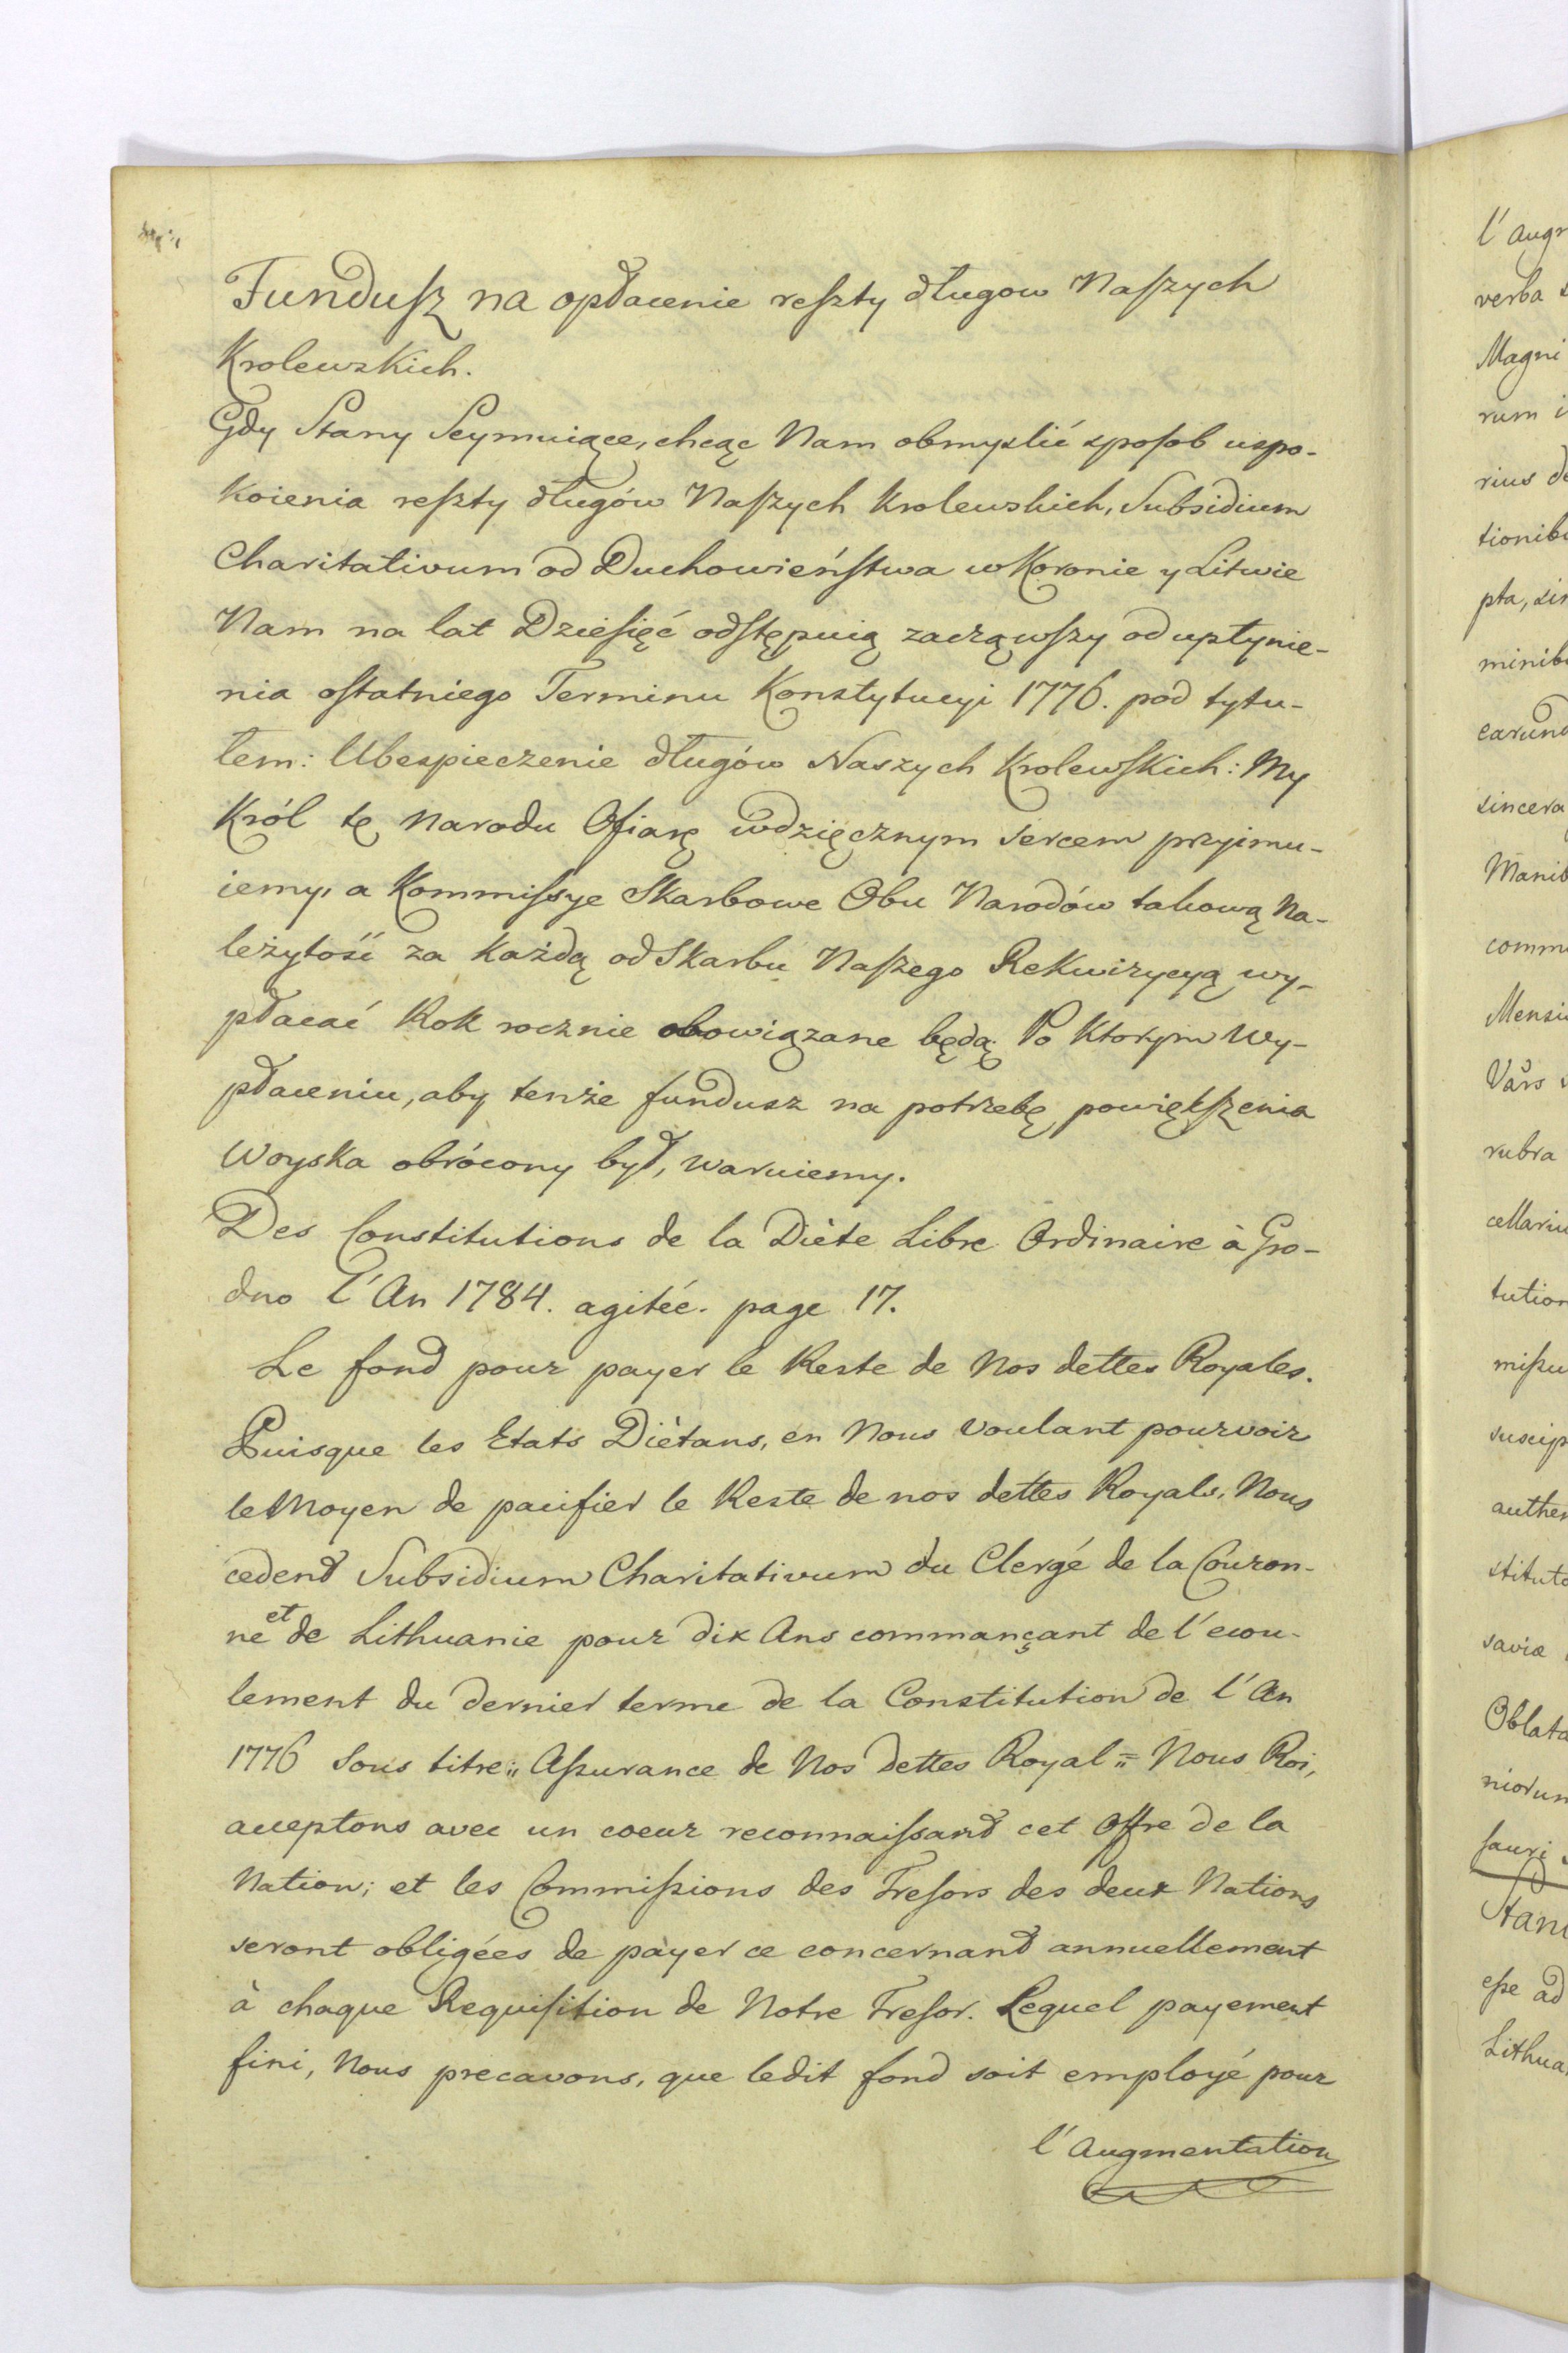 Fundusz na opłacenie reszty długow Naszych
Krolewskich.
Gdy Stany Seymuiące, chcąc Nam obmyslić sposob uspo-
koienia reszty długów Naszych Krolewskich, Subsidium
Charitativum od Duchowieństwa w Koronie y Litwie
Nam na lat Dziesięć odstępuią zacząwszy od upłynie-
nia ostatniego Terminu Konstytucyi 1776. pod tytu-
łem: Ubespieczenie długów Naszych Krolewskich: My
Król tę Narodu Ofiarę wdzięcznym sercem przyimu-
iemy, a Kommissye Skarbowe Obu Narodów takową Na-
leżytość za każdą od Skarbu Naszego Rekwizycyą wy-
płacać Rok rocznie obowiązane będą. Po ktorym Wy-
płaceniu, aby tenże fundusz na potrzebę powiększenia
Woyska obrócony był, waruiemy.
Des Constitutions de la Diète Libre Ordinaire à Gro-
dno l'An 1784. agitée. page 17.
Le fond pour payer le Reste de Nos dettes Royales.
Puisque les Etats Diètans, en Nous voulant pourvoir
le Moyen de pacifier le Reste de nos dettes Royals, Nous
cedent Subsidium Charitativum du Clergé de la Couron-
ne et de Lithuanie pour dix Ans commançant de l'ecou-
lement du dernier terme de la Constitution de l'An
1776 sous titre: Assurance de Nos dettes Royal = Nous Roi,
acceptons avec un coeur reconnaissant cet offre de la
Nation; et les Commissions des Tresors des deux Nations
seront obligées de payer ce concernant annuellement
à chaque Requisition de Notre Tresor. Lequel payement
fini, Nous precavons, que ledit fond soit employé pour
l'Augmentation
l'Augm
verba
Magni
rum
rius
tionibu
pta,
minibu
earund
sincera
Manib
comm
Mensi
Vars
rubra
cellariu
tution
missu
suscip
authen
stituto
saviæ
Oblata
niorum
sauri
Stani
esse ad
Lithua